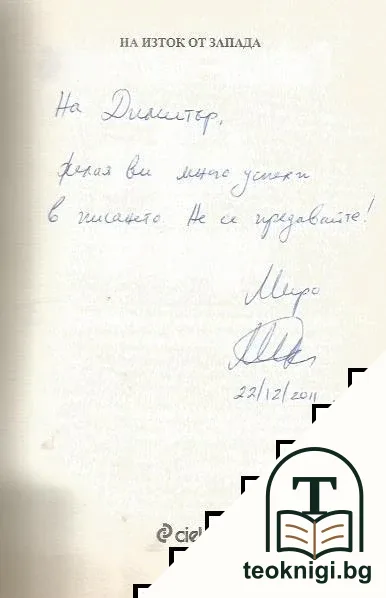 НА ИЗТОК ОТ ЗАПАДА
На Димитър,
желая Ви много успехи
в писането. Не се предавайте!
Миро
22/12/2011
ciel
T
teoknigi.bg